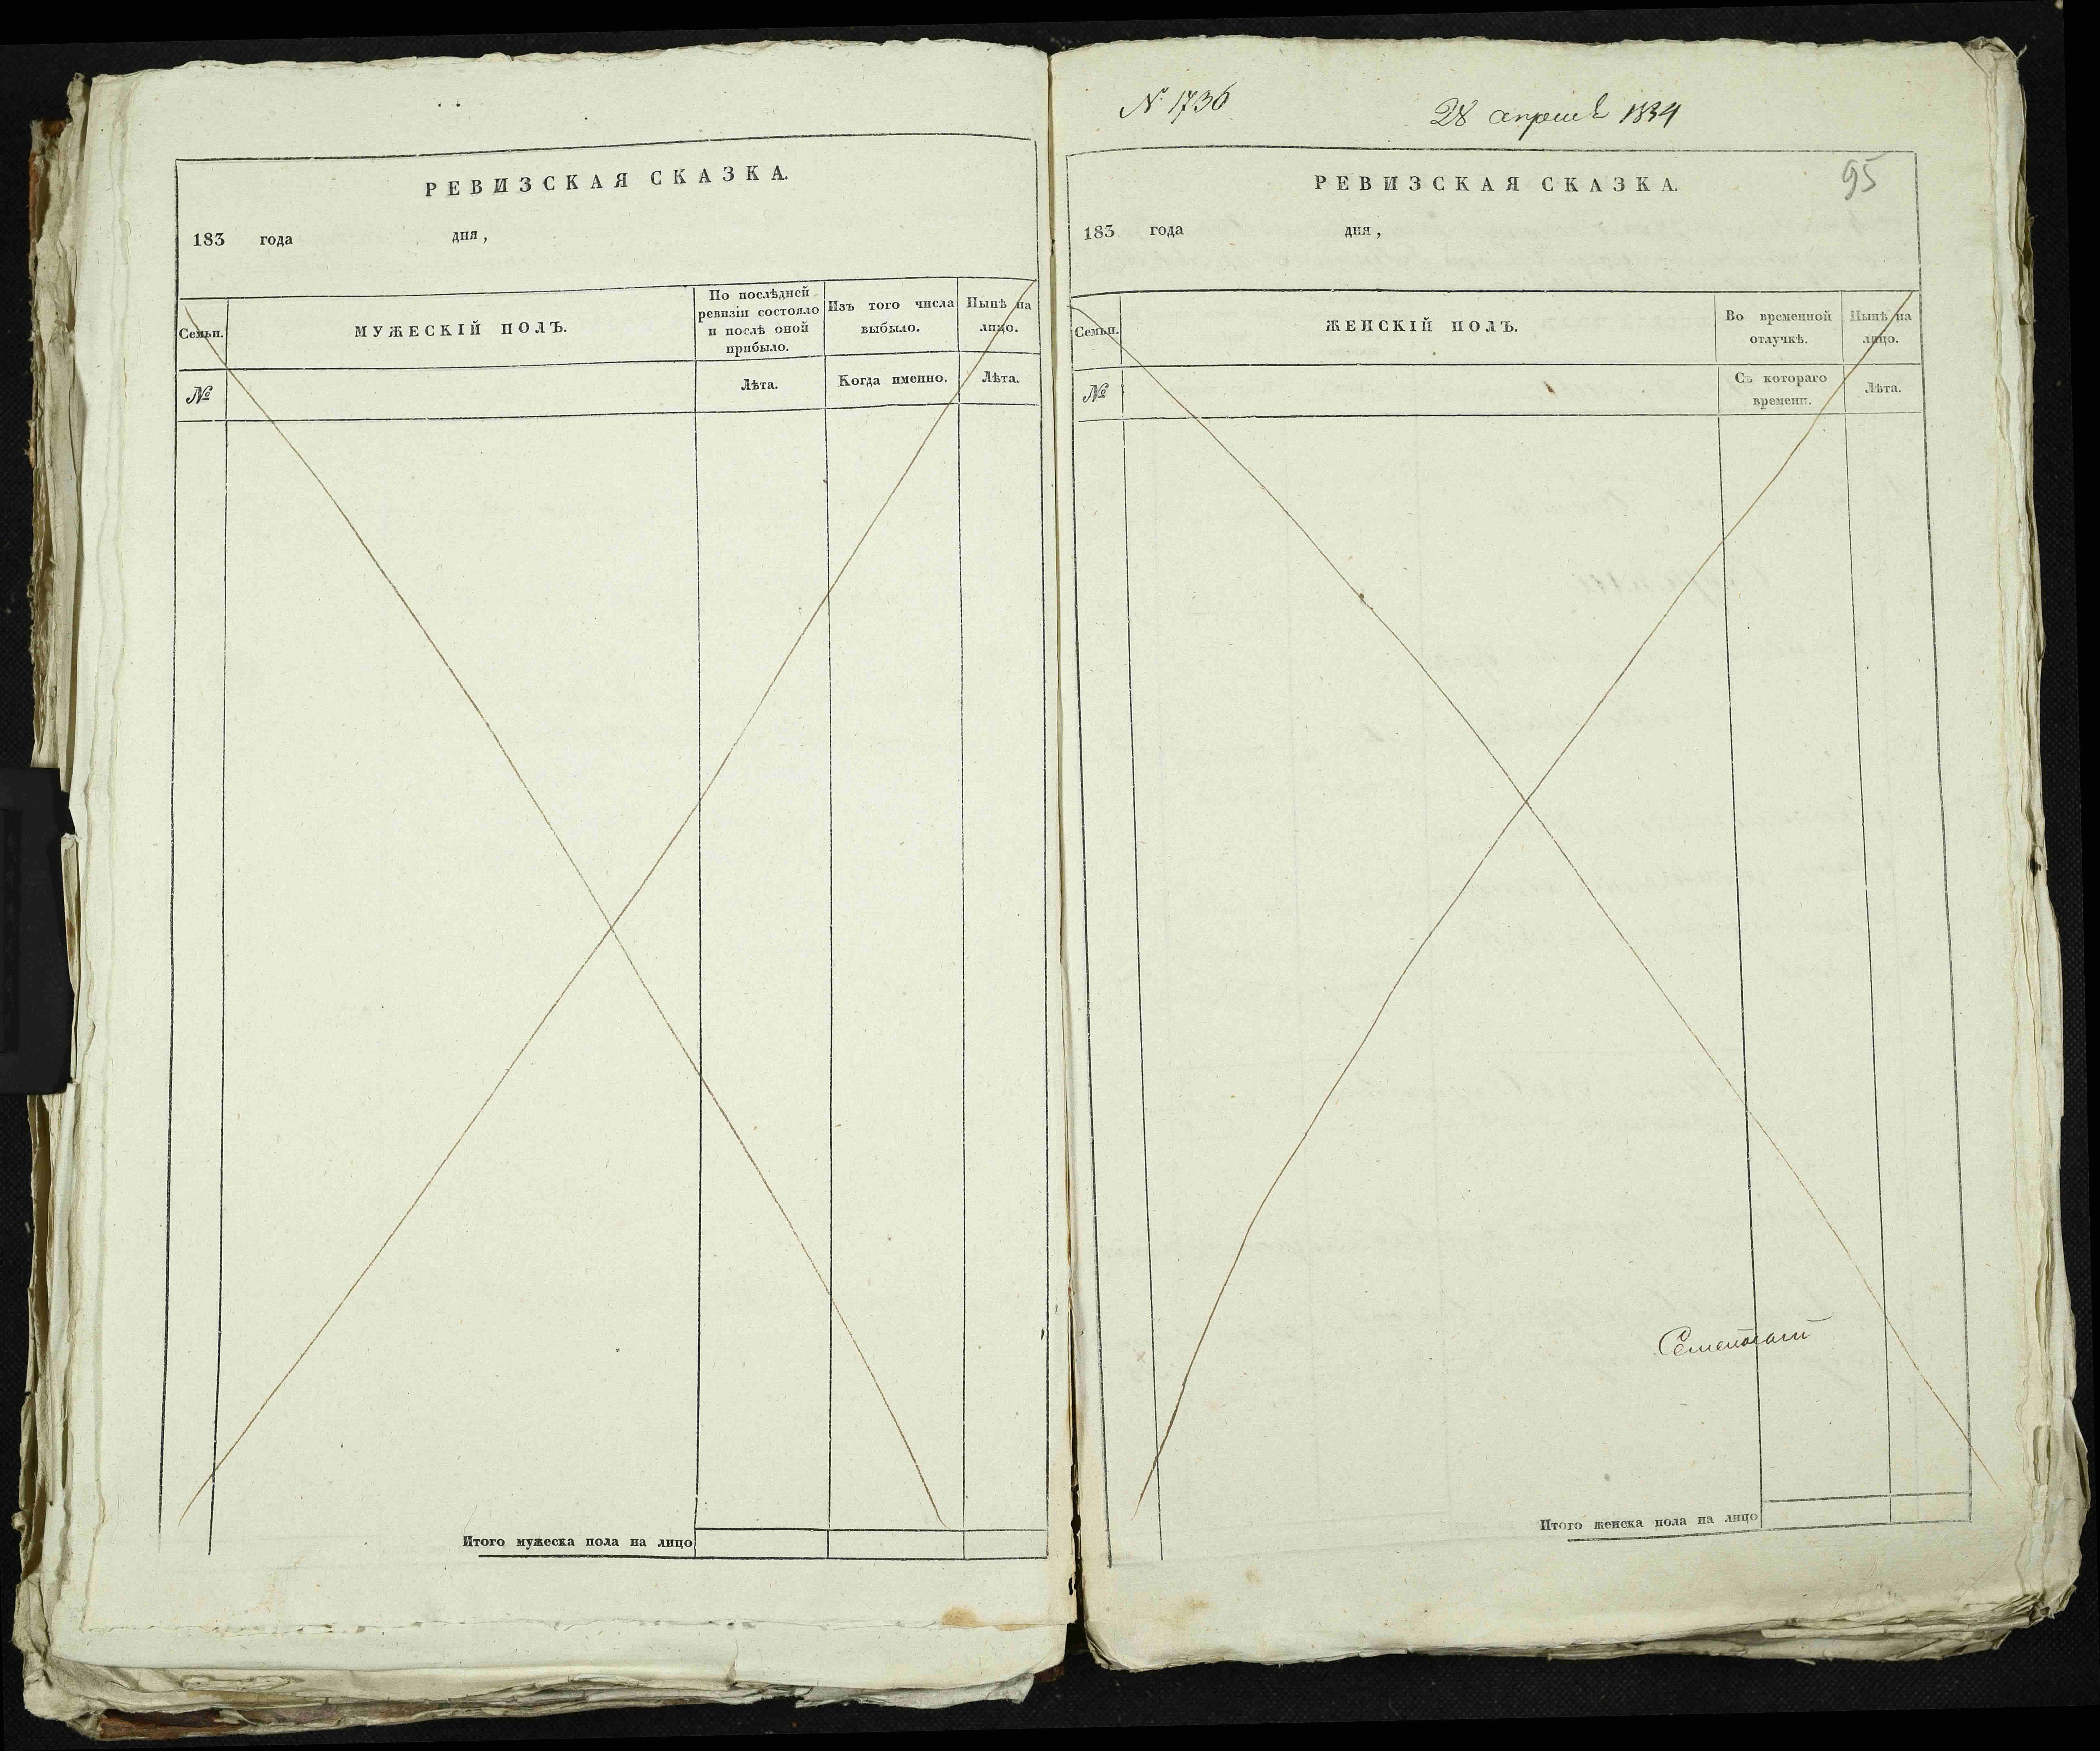 РЕВИЗСКАЯ СКАЗКА.
183 года дня,
Семьи.
МУЖЕСКІЙ ПОЛЪ.
По послѣдней
ревизіи состояло
и послѣ оной
прибыло.
Изъ того числа
выбыло.
Нынѣ на
лицо.
№
Лѣта.
Когда именно.
Лѣта.
Итого мужеска пола на лицо
№ 1736
28 апреля 1834
95
РЕВИЗСКАЯ СКАЗКА.
183 года дня,
Семьи.
ЖЕНСКІЙ ПОЛЪ.
Во временной
отлучкѣ.
Нынѣ на
лицо.
№
Съ котораго
времени.
Лѣта.
Итого женска пола на лицо